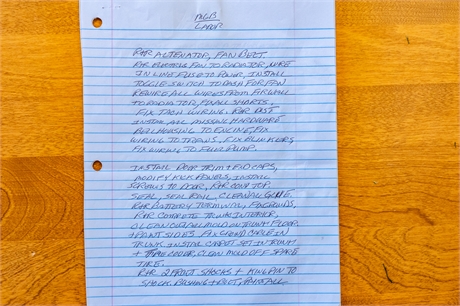 MGB
LABOR
R&R ALTENATOR, FAN BELT
R&R ELECTRIC FAN TO RADIATOR, WIRE
IN LINE FUSE TO POWER, INSTALL
TOGGLE SWITCH TO DASH FOR FAN
REWIRE ALL WIRES FROM FIREWALL
TO RADIATOR, FIX ALL SHORTS,
FIX TACH WIRING. R&R DIST
INSTALL ALL MISSING HARDWARE
BELLHOUSING TO ENGINE, FIX
WIRING TO TRANS, FIX BLINKERS,
FIX WIRING TO FUEL PUMP.
INSTALL DOOR TRIM + END CAPS,
MODIFY KICK PANELS, INSTALL
SCREWS TO DOOR, R&R CONV TOP
SEAL, SEAL RAIL, CLEAN ALL GLUE
R&R BATTERY TERMINAL, GROUNDS,
R&R COMPLETE TRUNK INTERIOR,
CLEAN OUT ALL MOLD ON TRUNK FLOOR
+ PAINT SIDES FIX GROUND CABLE IN
TRUNK INSTALL CARPET SET IN TRUNK
+ TIRE COVER, CLEAN MOLD OFF SPARE
TIRE.
R&R 2 FRONT SHOCKS + KING PIN TO
SHOCK BUSHING + BOLT,